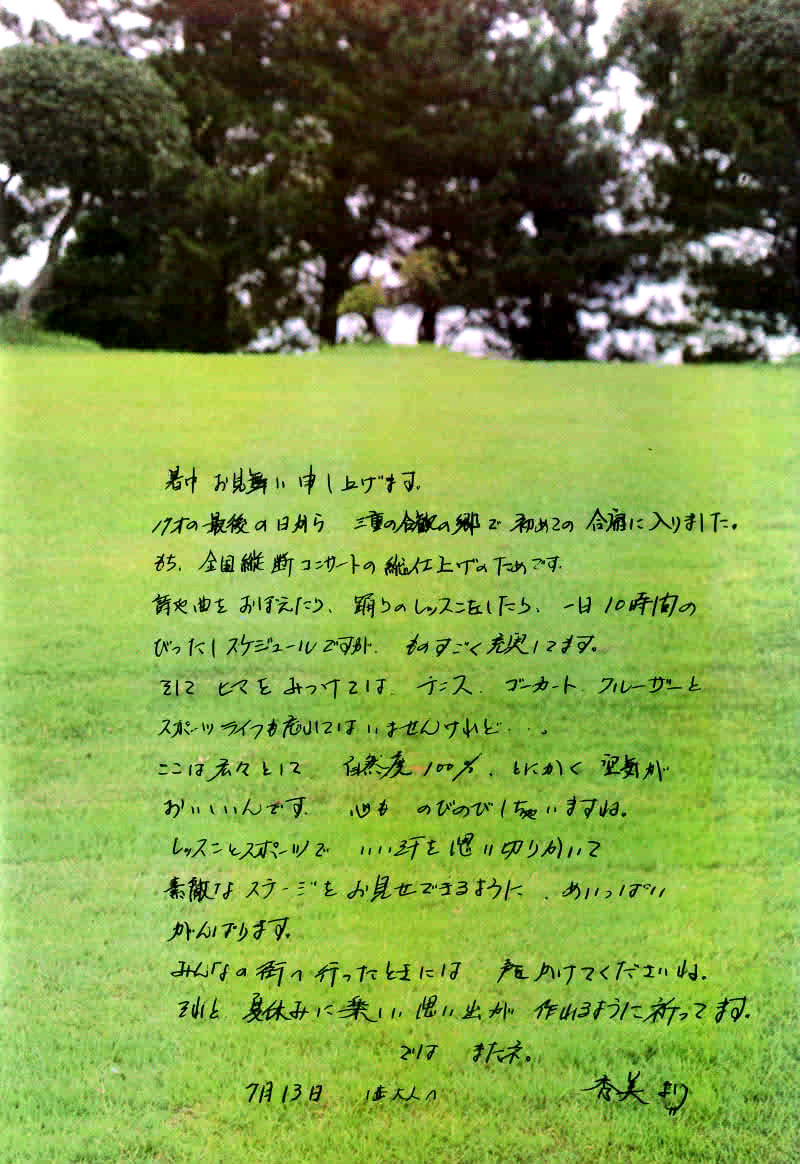 暑中お見舞い申し上げます。
17才の最後の日から 三重の合歓の郷で 初めての 合宿に入りました。
もち、全国縦断コンサートの総仕上げのためです。
曲をおぼえたり、踊りのレッスンをしたら、一日10時間の
びったしスケジュールですが、ものすごく充実してます。
そして ヒマをみつけては、テニス、ゴーカート、クルーザーと
スポーツライフも忘れてはいませんけれど・・・。
ここは広々として 自然度100%、とにかく 空気が
おいしいんです。心も のびのびしちゃいますね。
レッスンとスポーツで いい汗を思い切りかいて
素敵なステージをお見せできるように、めいっぱい
がんばります。
みんなの街へ行ったときには 声かけてくださいね。
それと、夏休みに楽しい思い出が 作れるように祈ってます。
では またネ。
7月13日 秀美より